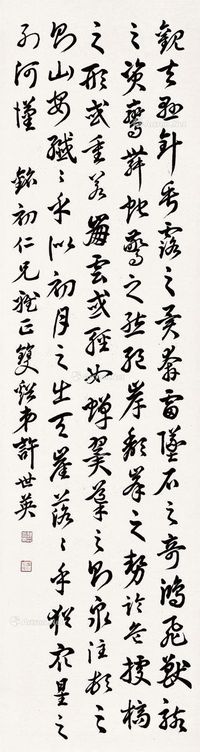 觀夫懸針垂露之異奔雷墜石之奇鴻飛獸駭
之資鸞舞蛇驚之態絕岸頹峰之勢臨危據槁
之形或重若崩雲或輕如蟬翼導之則泉注頓之
則山安纖纖乎似初月之出天崖落落乎猶眾星之
列河漢 銘初仁兄雅正 雙谿弟許世英